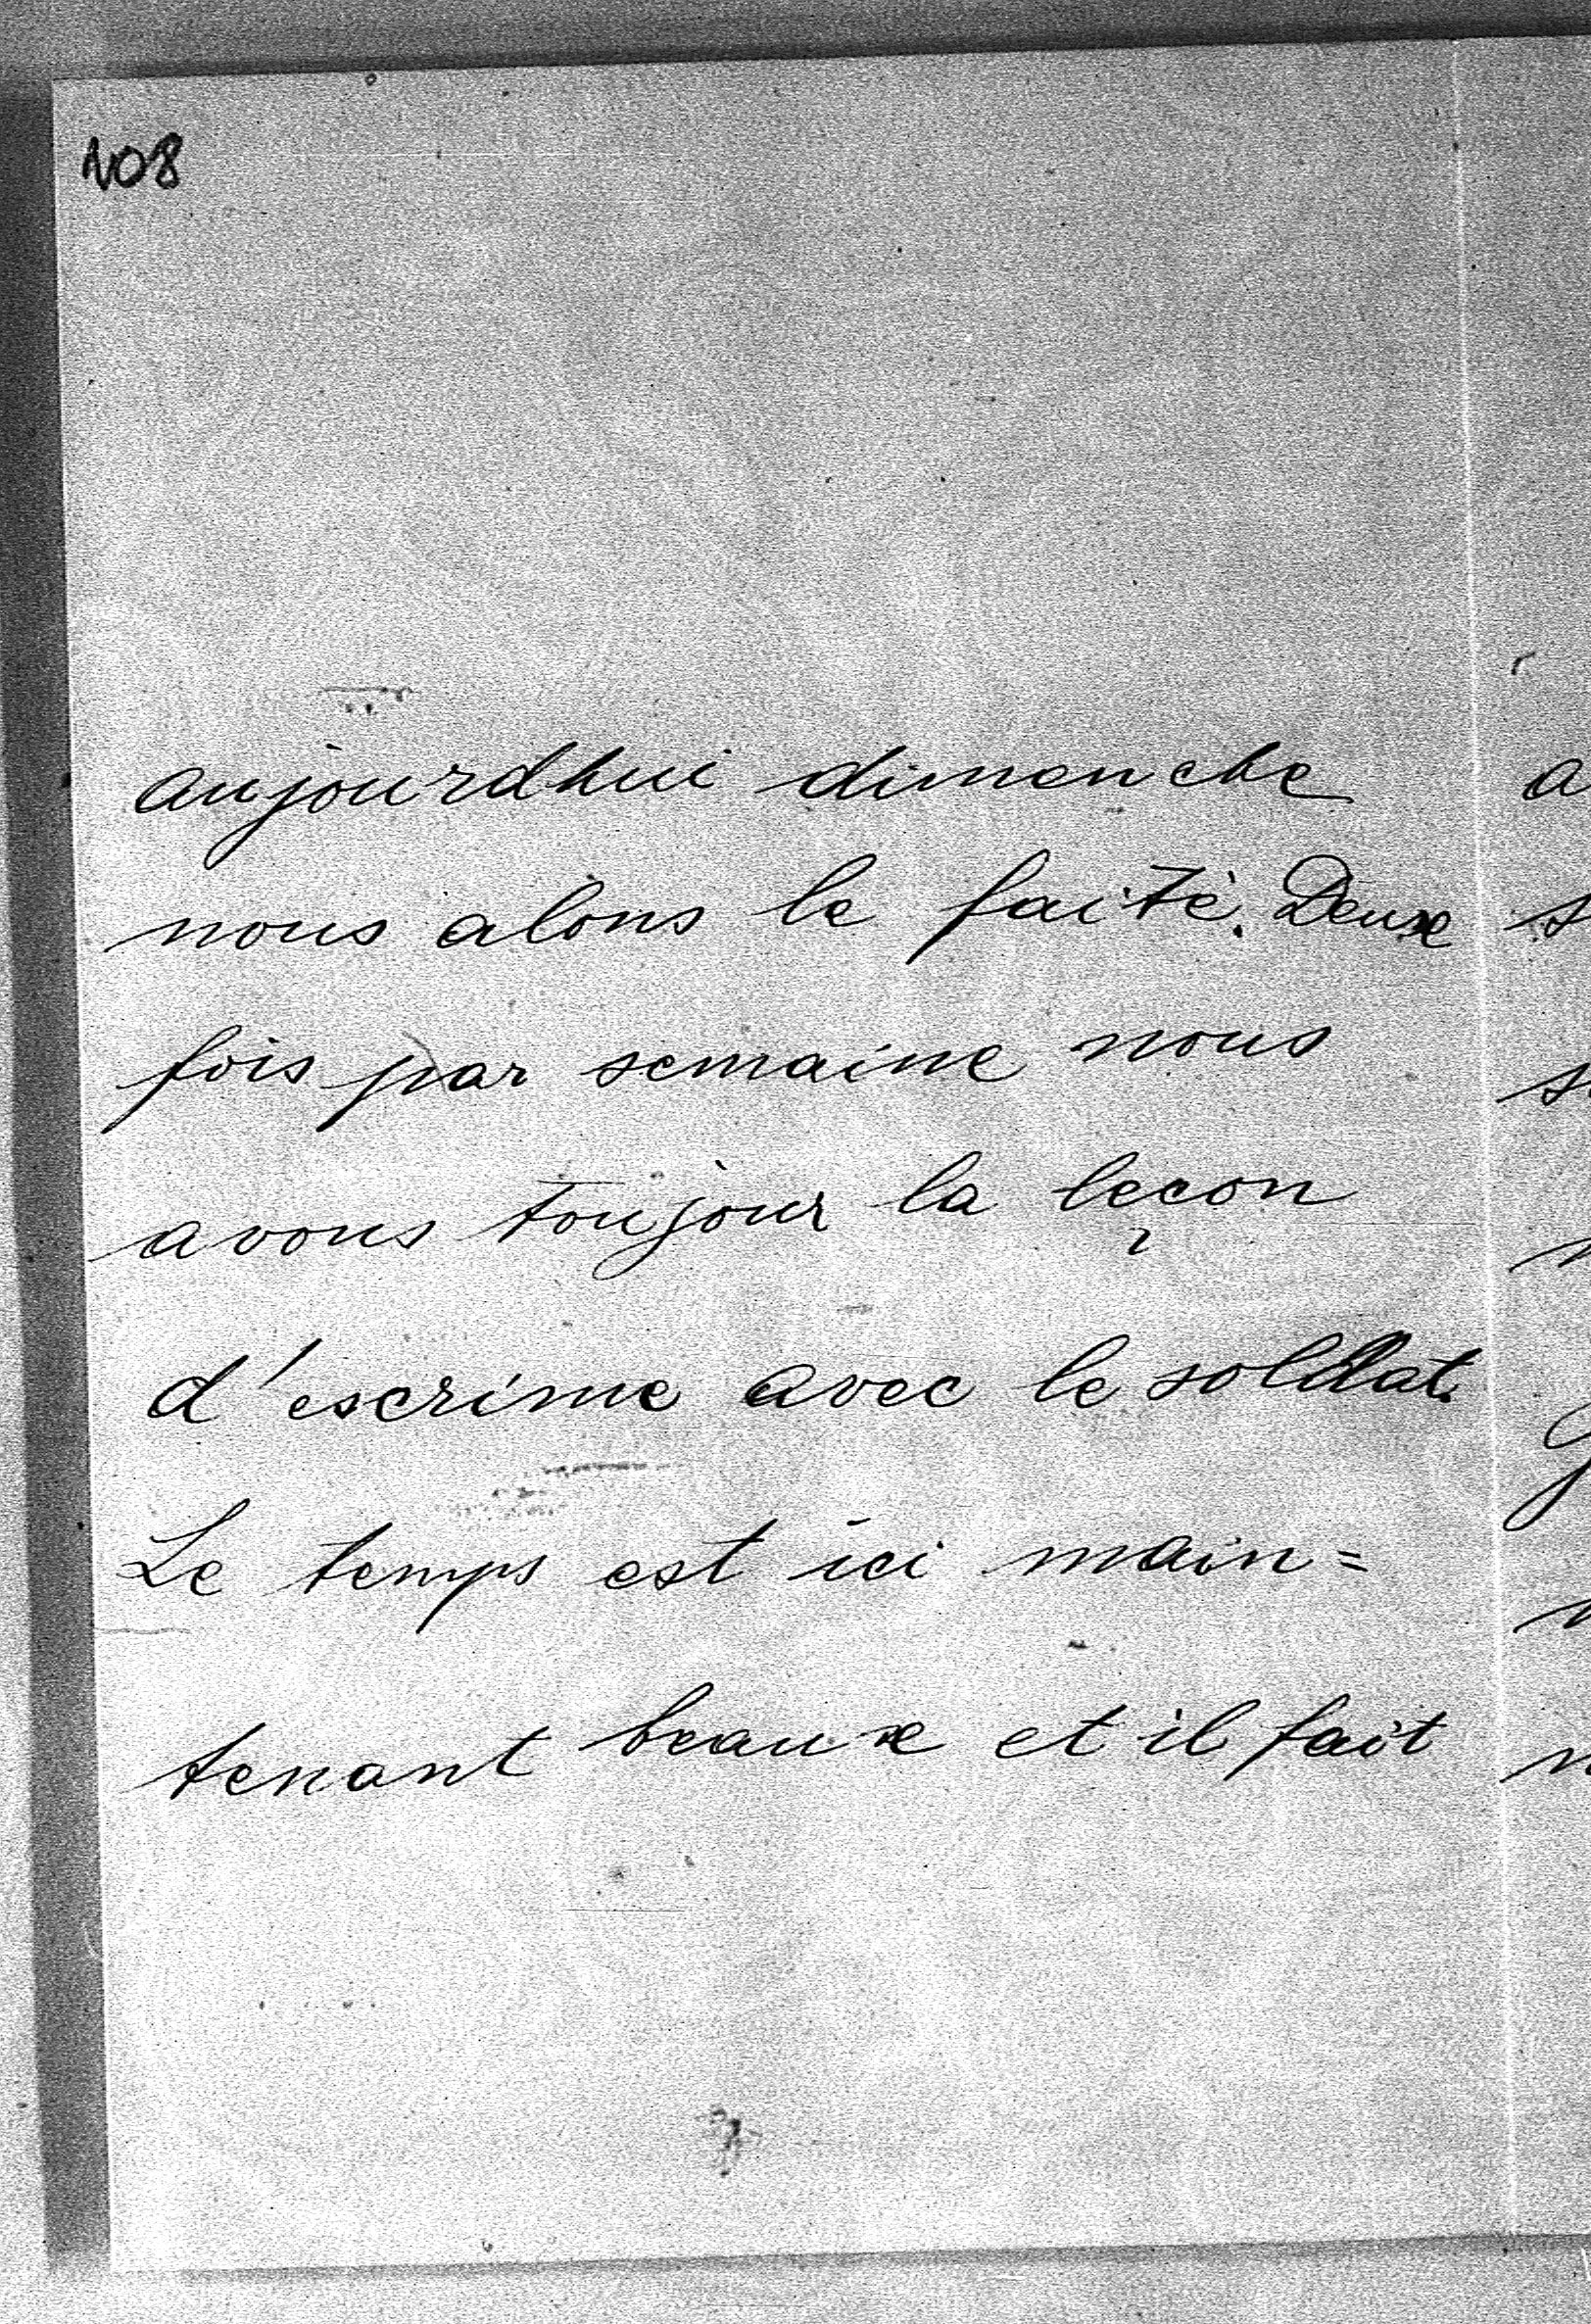 108
aujourdhui dimenche
nous alons le faité. Deux
fois par semaine nous
avons toujour la leçon
d'escrime avec le soldat.
Le temps est ici main=
tenant beaux et il fait